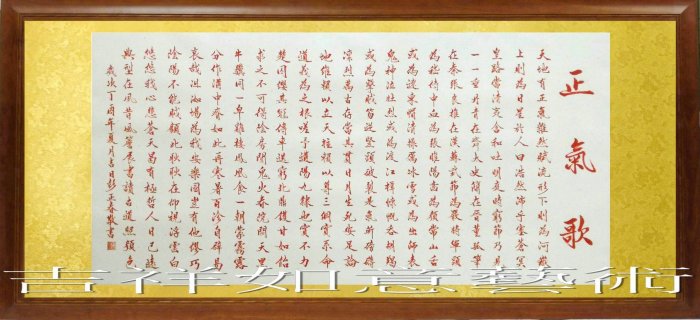 正氣歌
天地有正氣雜然賦流形下則為河嶽
上則為日星於人曰浩然沛乎塞蒼冥
皇路當清夷含和吐明庭時窮節乃見
一一垂丹青在齊太史簡在晉董狐筆
在秦張良椎在漢蘇武節為嚴將軍頭
為嵇侍中血為張睢陽齒為顏常山舌
或為遼東帽清操厲冰雪或為出師表
鬼神泣壯烈或為渡江楫慷慨吞胡羯
或為擊賊笏逆豎頭破裂是氣所磅礴
凜烈萬古存當其貫日月生死安足論
地維賴以立天柱賴以尊三綱實系命
道義為之根嗟予遘陽九隸也實不力
楚囚纓其冠傳車送窮北鼎鑊甘如飴
求之不可得陰房闃鬼火春院閟天黑
牛驥同一皁雞棲鳳凰食一朝蒙霧露
分作溝中瘠如此再寒暑百沴自辟易
哀哉沮洳場為我安樂國豈有他繆巧
陰陽不能賊顧此耿耿在仰視浮雲白
悠悠我心悲蒼天曷有極哲人日已遠
典型在夙昔風簷展書讀古道照顏色
歲次丁酉年夏月吉日彭正敬書
吉祥如意藝術